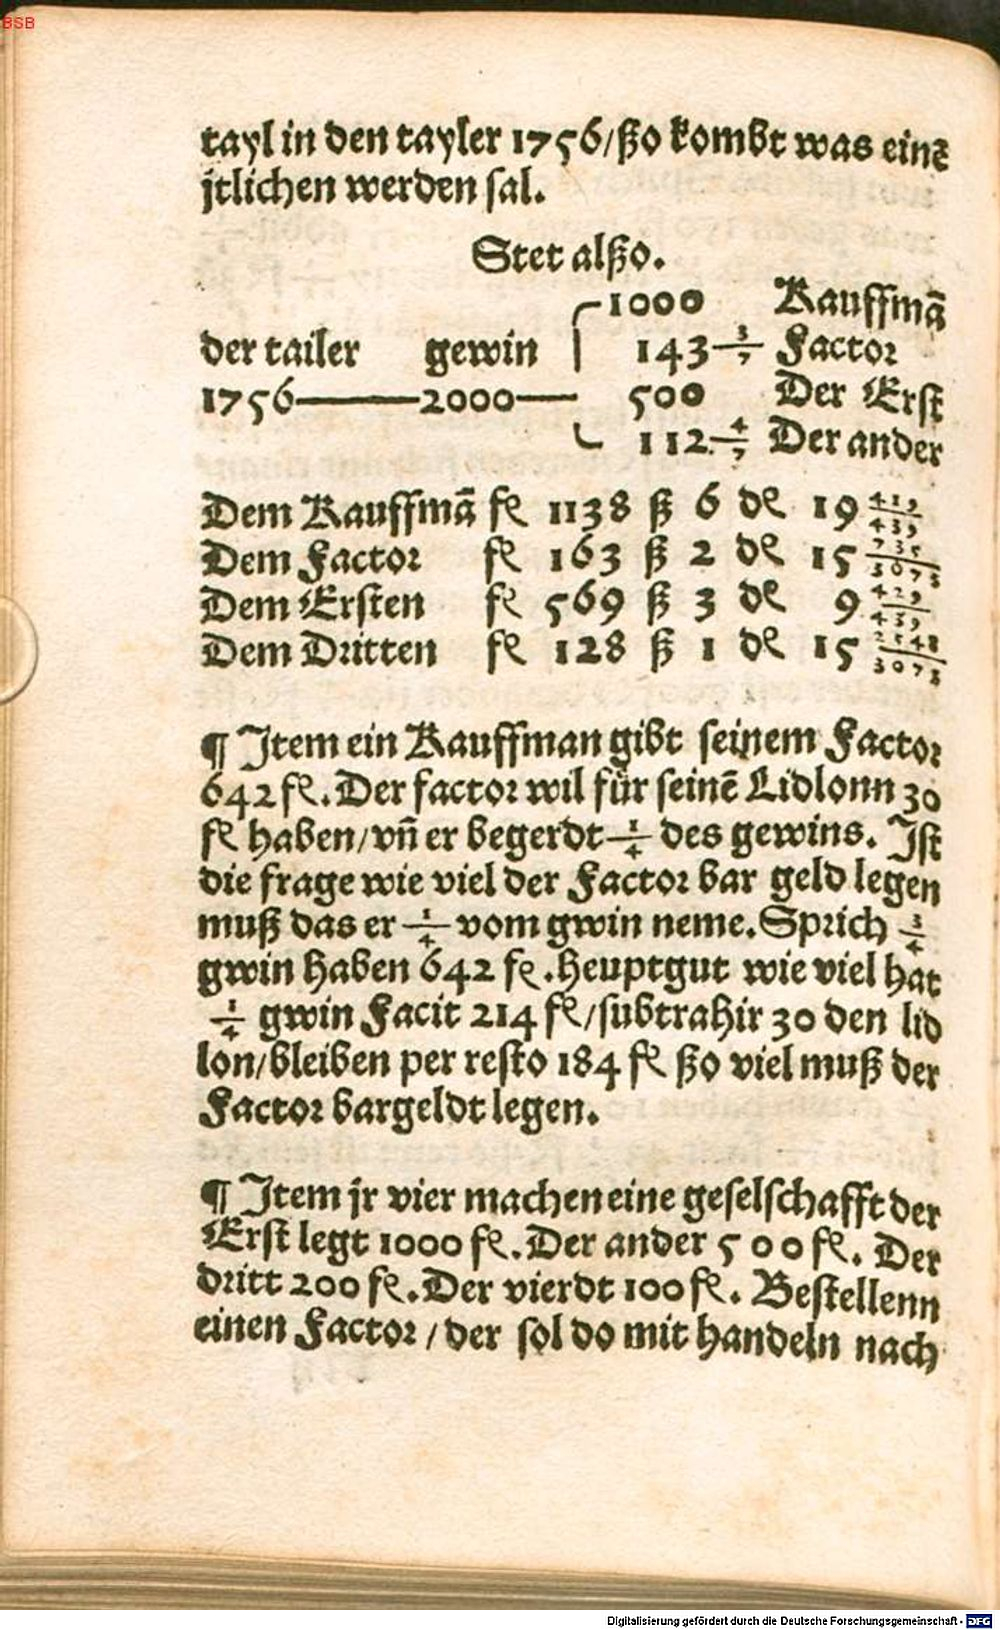 BSB
tayl in den tayler 1756/ßo kombt was einē
jtlichen werden sal.
Stet alßo.
1000 Kauffmā
der tailer gewin 143 3/7 Factor
1756——2000—— 500 Der Erst
112 4/7 Der ander
Dem Kauffmā fl 1138 ß 6 dl 19 419/439
Dem Factor fl 163 ß 2 dl 15 735/3073
Dem Ersten fl 569 ß 3 dl 9 429/439
Dem Dritten fl 128 ß 1 dl 15 2548/3073
¶ Item ein Kauffman gibt seinem Factor
642 fl. Der factor wil für seinē Lidlonn 30
fl haben/vn̄ er begerdt 1/4 des gewins. Ist
die frage wie viel der Factor bar geld legen
muß das er 1/4 vom gwin neme. Sprich 3/4
gwin haben 642 fl. heuptgut wie viel hat
1/4 gwin Facit 214 fl/subtrahir 30 den lid
lon/bleiben per resto 184 fl ßo viel muß der
Factor bargeldt legen.
¶ Item jr vier machen eine geselschafft der
Erst legt 1000 fl. Der ander 500 fl. Der
dritt 200 fl. Der vierdt 100 fl. Bestellenn
einen Factor/der sol do mit handeln nach
Digitalisierung gefördert durch die Deutsche Forschungsgemeinschaft - DFG